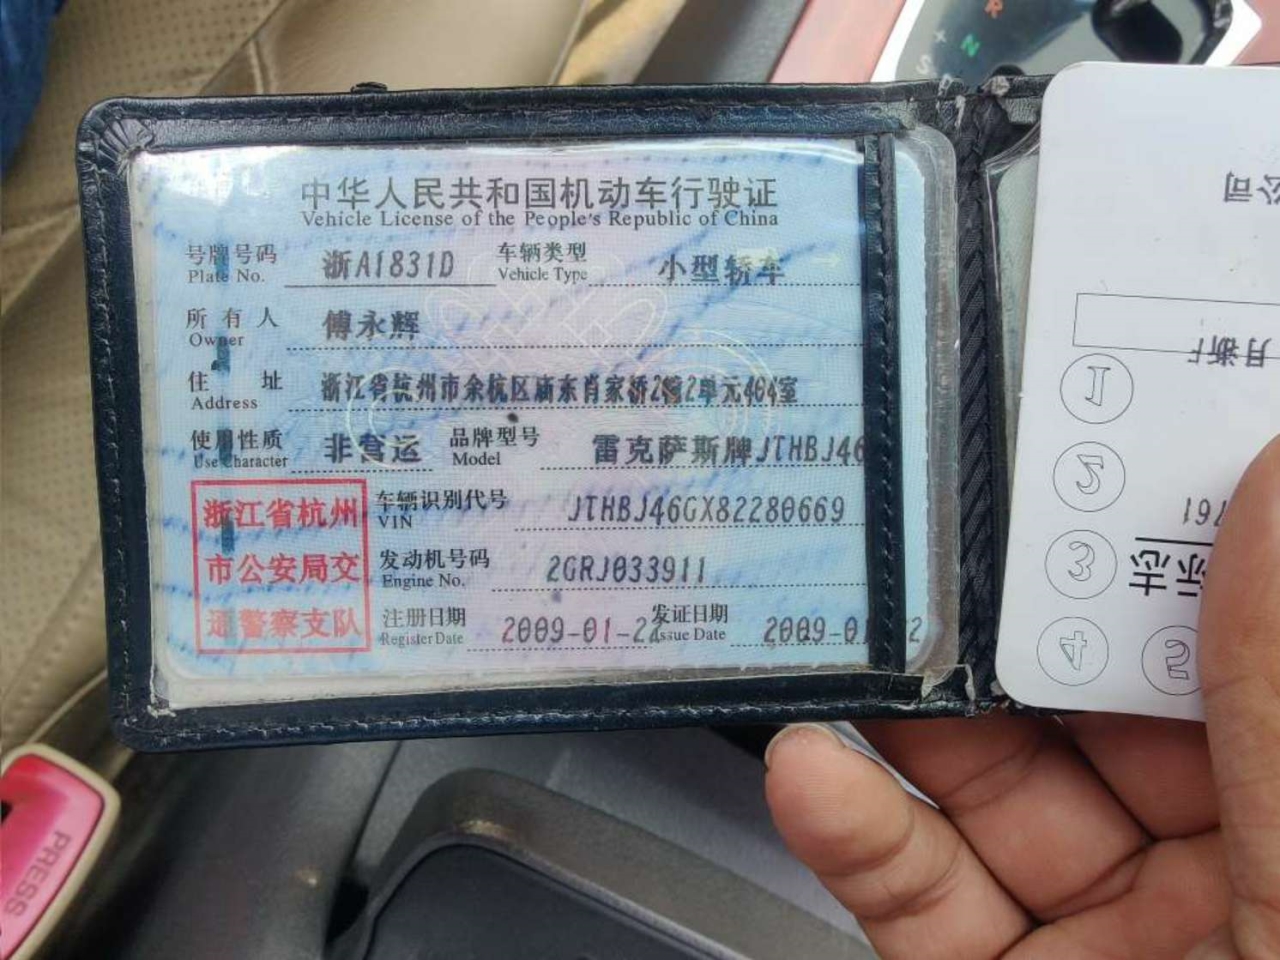 中华人民共和国机动车行驶证
Vehicle License of the People's Republic of China
号牌号码 浙A1831D 车辆类型 小型轿车
Plate No. Vehicle Type
所有人 傅永辉
Owner
住址 浙江省杭州市余杭区庙东肖家桥2幢2单元404室
Address
使用性质 非营运 品牌型号 雷克萨斯牌JTHBJ46
Use Character Model
浙江省杭州
市公安局交
通警察支队
车辆识别代号 JTHBJ46GX82280669
VIN
发动机号码 2GRJ033911
Engine No.
注册日期 2009-01-22 发证日期 2009-01 2
Register Date Issue Date
公司
1
2
3
标志
4
5
761
R
N
S
PRESS